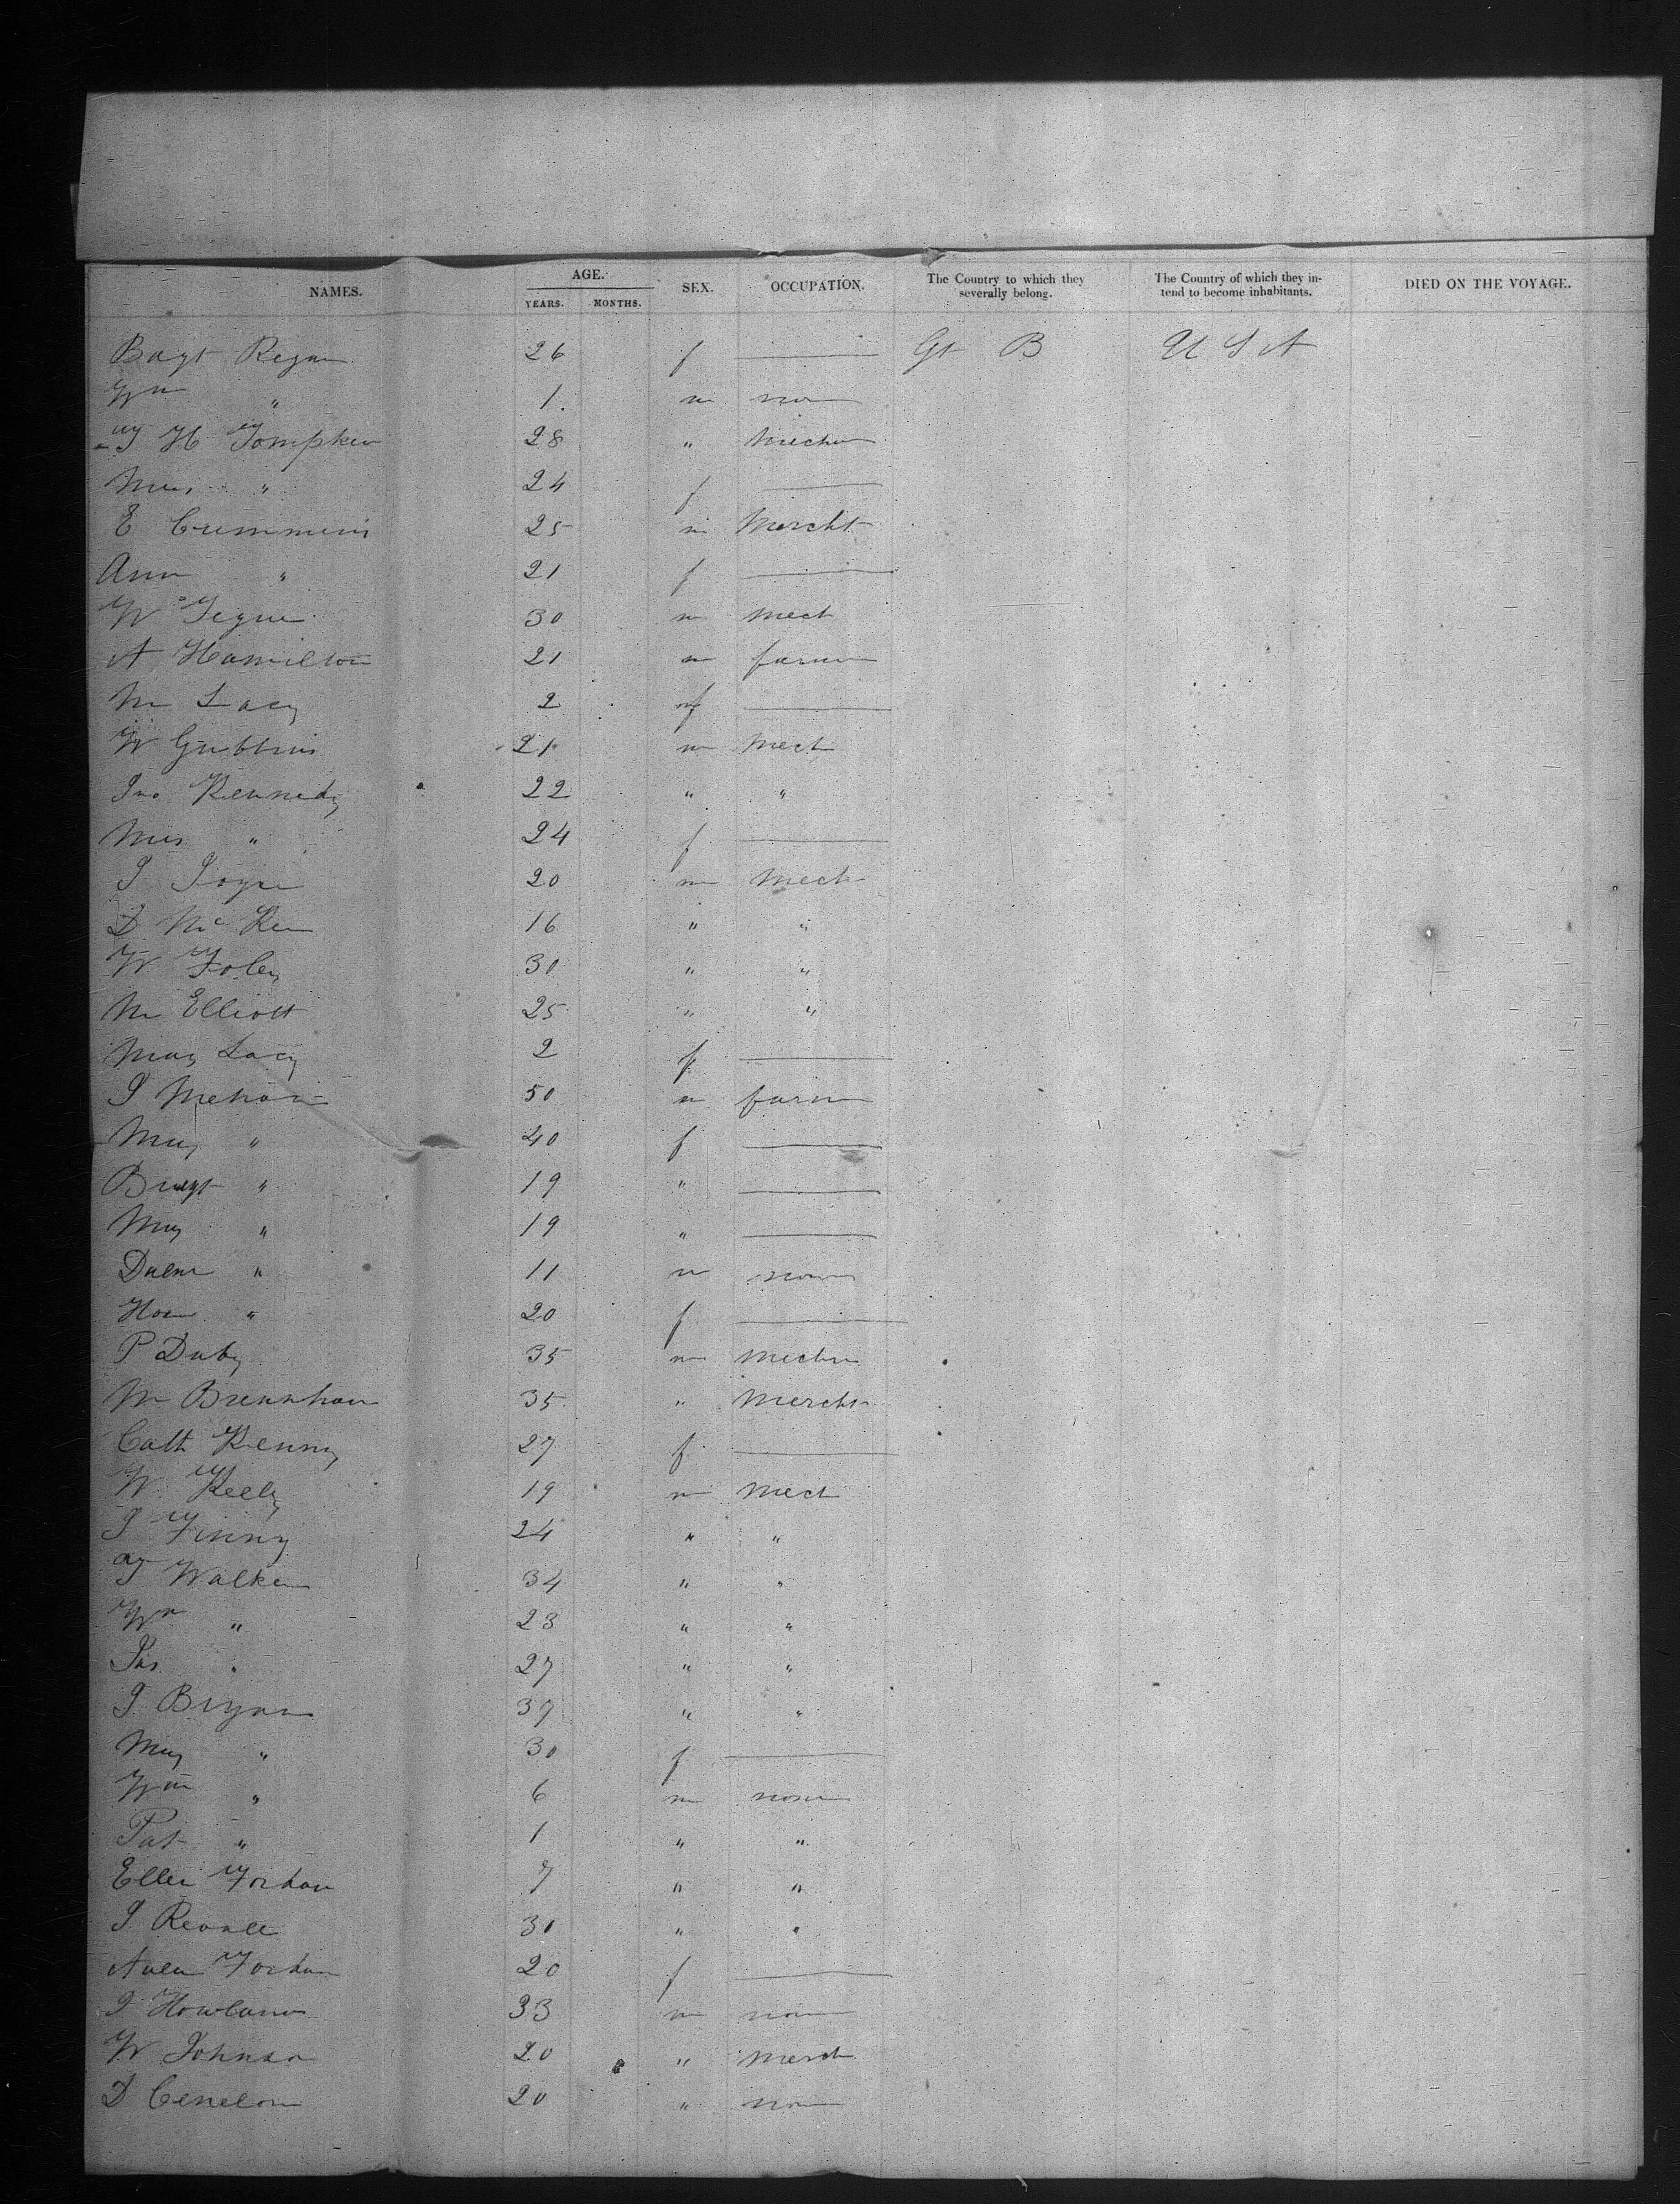 NAMES. AGE. YEARS. MONTHS. SEX. OCCUPATION. The Country to which they severally belong. The Country of which they intend to become inhabitants. DIED ON THE VOYAGE.
Bagt Regan 26 f — Gt B U S A
Wm " 1 m non
T H Tompkin 28 " Mechn
Mrs " 24 f —
E Cummins 25 m Mercht
Ann " 21 f —
W 30 m Mect
A Hamilton 21 m farm
M Lacy 2 f —
W Gubbins 21 m Mect
Jno Kennedy 22 " "
Mrs " 24 f —
J 20 m Mech
D Mc 16 " "
W Foley 30 " "
M Elliott 25 " "
Mary Lacy 2 f —
J 50 m farm
Mary " 40 f —
" 19 " —
Mary " 19 " —
" 11 m none
" 20 f —
P Duby 35 m Mechn
M Brennhan 35 " Mercht
Cath Kenny 27 f —
W Keely 19 m Mect
J Finny 24 " "
T Walker 34 " "
Wm " 23 " "
Jas " 27 " "
J Bryan 37 " "
Mary " 30 f —
Wm " 6 m none
Pat " 1 " "
Ellen 7 " "
J 30 " "
20 f —
J Howland 33 m non
W Johnson 20 " Merch
D 20 " non